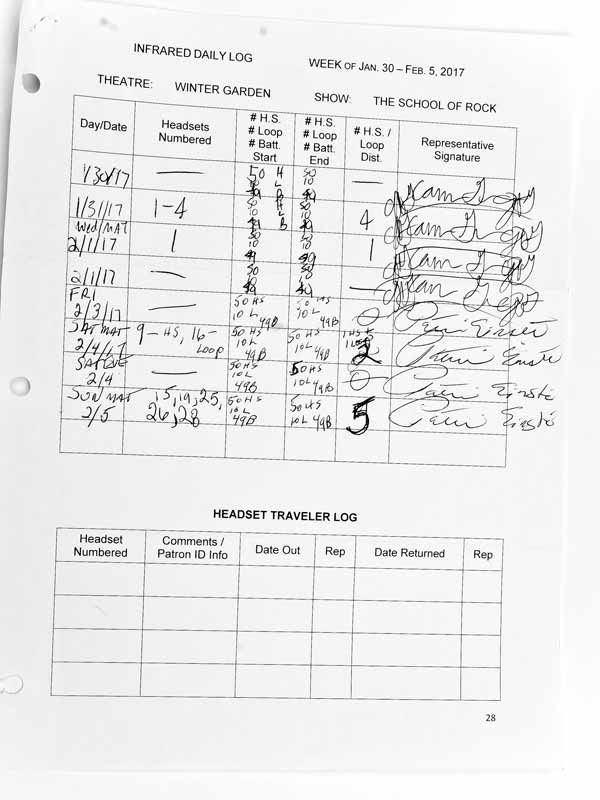 INFRARED DAILY LOG WEEK OF JAN. 30 – FEB. 5, 2017
THEATRE: WINTER GARDEN SHOW: THE SCHOOL OF ROCK
Day/Date Headsets Numbered # H.S. # Loop # Batt. Start # H.S. # Loop # Batt. End # H.S. / Loop Dist. Representative Signature
1/30/17 — 50 H 10 L 49 B 50 10 49 —
1/31/17 1-4 50 H 10 L 49 B 50 10 49 4
Wed/MAT 2/1/17 1 50 10 49 50 10 49 1
2/1/17 — 50 10 49 50 10 49 —
FRI 2/3/17 — 50 HS 10 L 49B 50 HS 10 L 49B 0
SAT MAT 2/4/17 9 – HS, 16 – Loop 50 HS 10L 49B 50 HS 10L 49B 1 HS 1 Loop 2
SAT EVE 2/4 — 50HS 10L 49B 50HS 10L 49B 0
SUN MAT 2/5 1, 5, 19, 25, 26, 28 50HS 10L 49B 50HS 10L 49B 5
HEADSET TRAVELER LOG
Headset Numbered Comments / Patron ID Info Date Out Rep Date Returned Rep
28